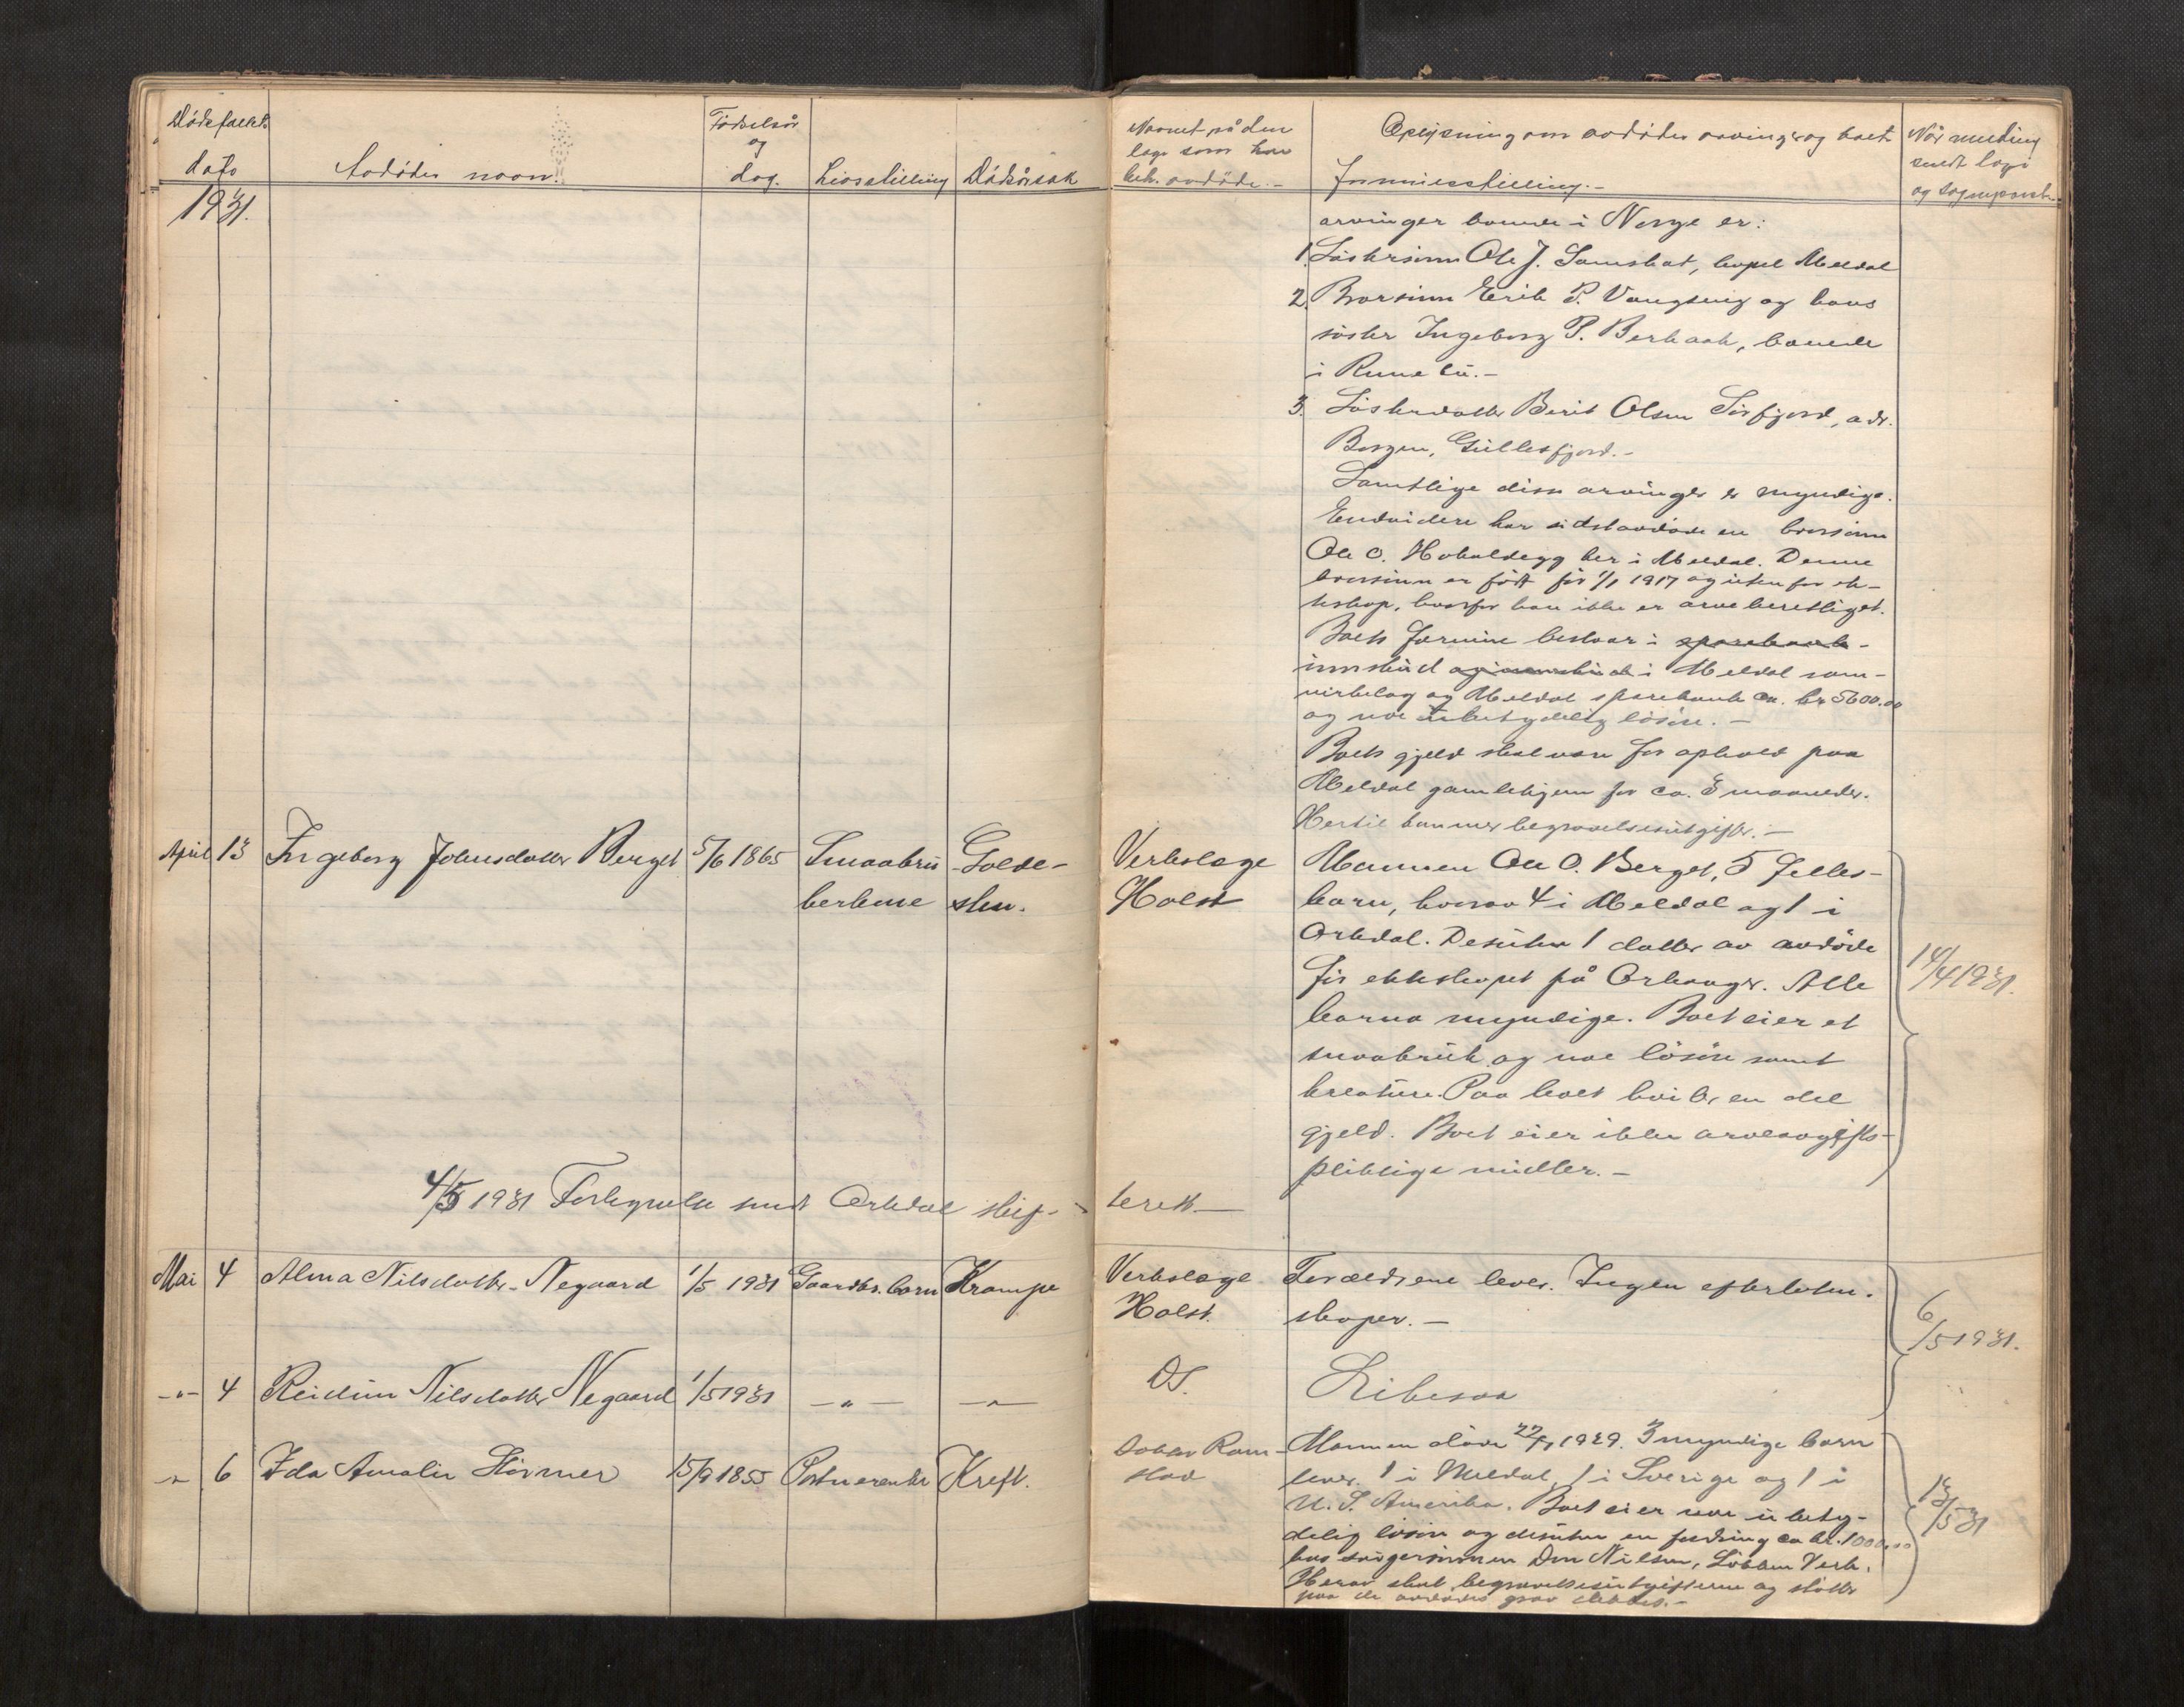 Dödsfaldets
dato
Avdödes navn.
Födselsår
og
dag.
Livsstilling
Dödsårsak
Navnet på den
læge som har
beh. avdöde.-
Oplysning om avdödes arvinger og boets
formuesstilling.-
Når melding
sendt lagr
og sogneprest.
1931.
arvinger boende i Norge er:
1. Söstersönn Ole J. Samskot, bopel Meldal
2. Brorsönn Erik P. Vangseng og hans
söster Ingeborg P. Berkaak, boende
i Rennebu.-
3. Sösterdatter Berit Olsen Sörfjord, adr.
Borgen, Gullesfjord.-
Samtlige disse arvinger er myndige.
Endvidere har sidstavdöde en brorsönn
Ole O. Hokaldegg her i Meldal. Denne
brorsönn er född för 1/1 1917 og utenfor ek-
teskap, hvorfor han ikke er arveberettiget.
Boets formue bestaar i sparebank-
innskud og innskud i Meldal sam-
virkelag og Meldal sparebank ca. kr 5600.00
og noe ubetydelig lösöre.-
Boets gjeld skal være for ophold paa
Meldal gamlehjem for ca. 3 maaneder.
Hertil kommer begravelsesutgifter.-
April 13 Ingeborg Johnsdatter Berget 5/6 1865 Smaabru Galde- Verkslæge Mannen Ole O. Berget, 5 felles-
berkone sten. Holst barn, hvorav 4 i Meldal og 1 i
Orkdal. Desuten 1 datter av avdöde
för ekteskapet på Orkanger. Alle
barna myndige. Boet eier et
smaabruk og noe lösöre samt
kreature. Paa boet hviler en del
gjeld. Boet eier ikke arveavgifts-
pliktige midler.-
14/4 1931.
4/5 1931 Forlegnelse sendt Orkdal skif- terett.
Mai 4 Alma Nilsdatter Negaard 1/5 1931 Gaardbr. barn Krampe Verkslæge Forældrene lever. Ingen efterlaten-
Holst. skaper.-
6/5 1931.
-"- 4 Reidun Nilsdatter Negaard 1/5 1931 -"- -"- Ds. Likesaa
-"- 6 Ida Amalie Störmer 15/9 1855 Postmerenke Kreft. Doktor Ram- Mannen döde 22/7 1929. 3 myndige barn
stad lever. 1 i Meldal, 1 i Sverige og 1 i
U. S. Amerika. Boet eier noe ubety-
delig lösöre og desuten en fordring ca kr. 1000.00
hos svigersönnen Nilsen, Lökken Verk.
Herav skal begravelsesutgifterne og stötte
paa de avdödes grav dekkes.-
13/5 31